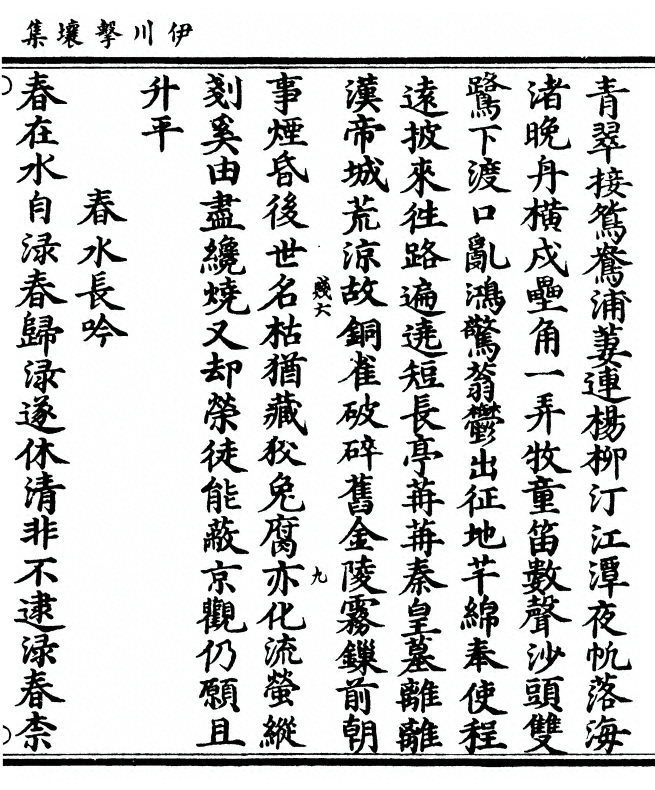 伊川擊壤集
青翠接鴛鴦浦萋連楊柳汀江潭夜帆落海
渚晚丹橫戍壘角一弄牧童笛數聲沙頭雙
鷺下渡口亂鴻驚蓊鬱出征地芊綿奉使程
遠披來徃路遍遶短長亭苒苒秦皇墓離離
漢帝城荒涼故銅雀破碎舊金陵霧鏁前朝
賤大
九
事煙昏後世名枯猶藏狡兔腐亦化流螢縱
剗奚由盡纔燒又却榮徒能蔽京觀仍願且
升平
春水長吟
春在水自淥春歸淥遂休清非不逮淥春柰